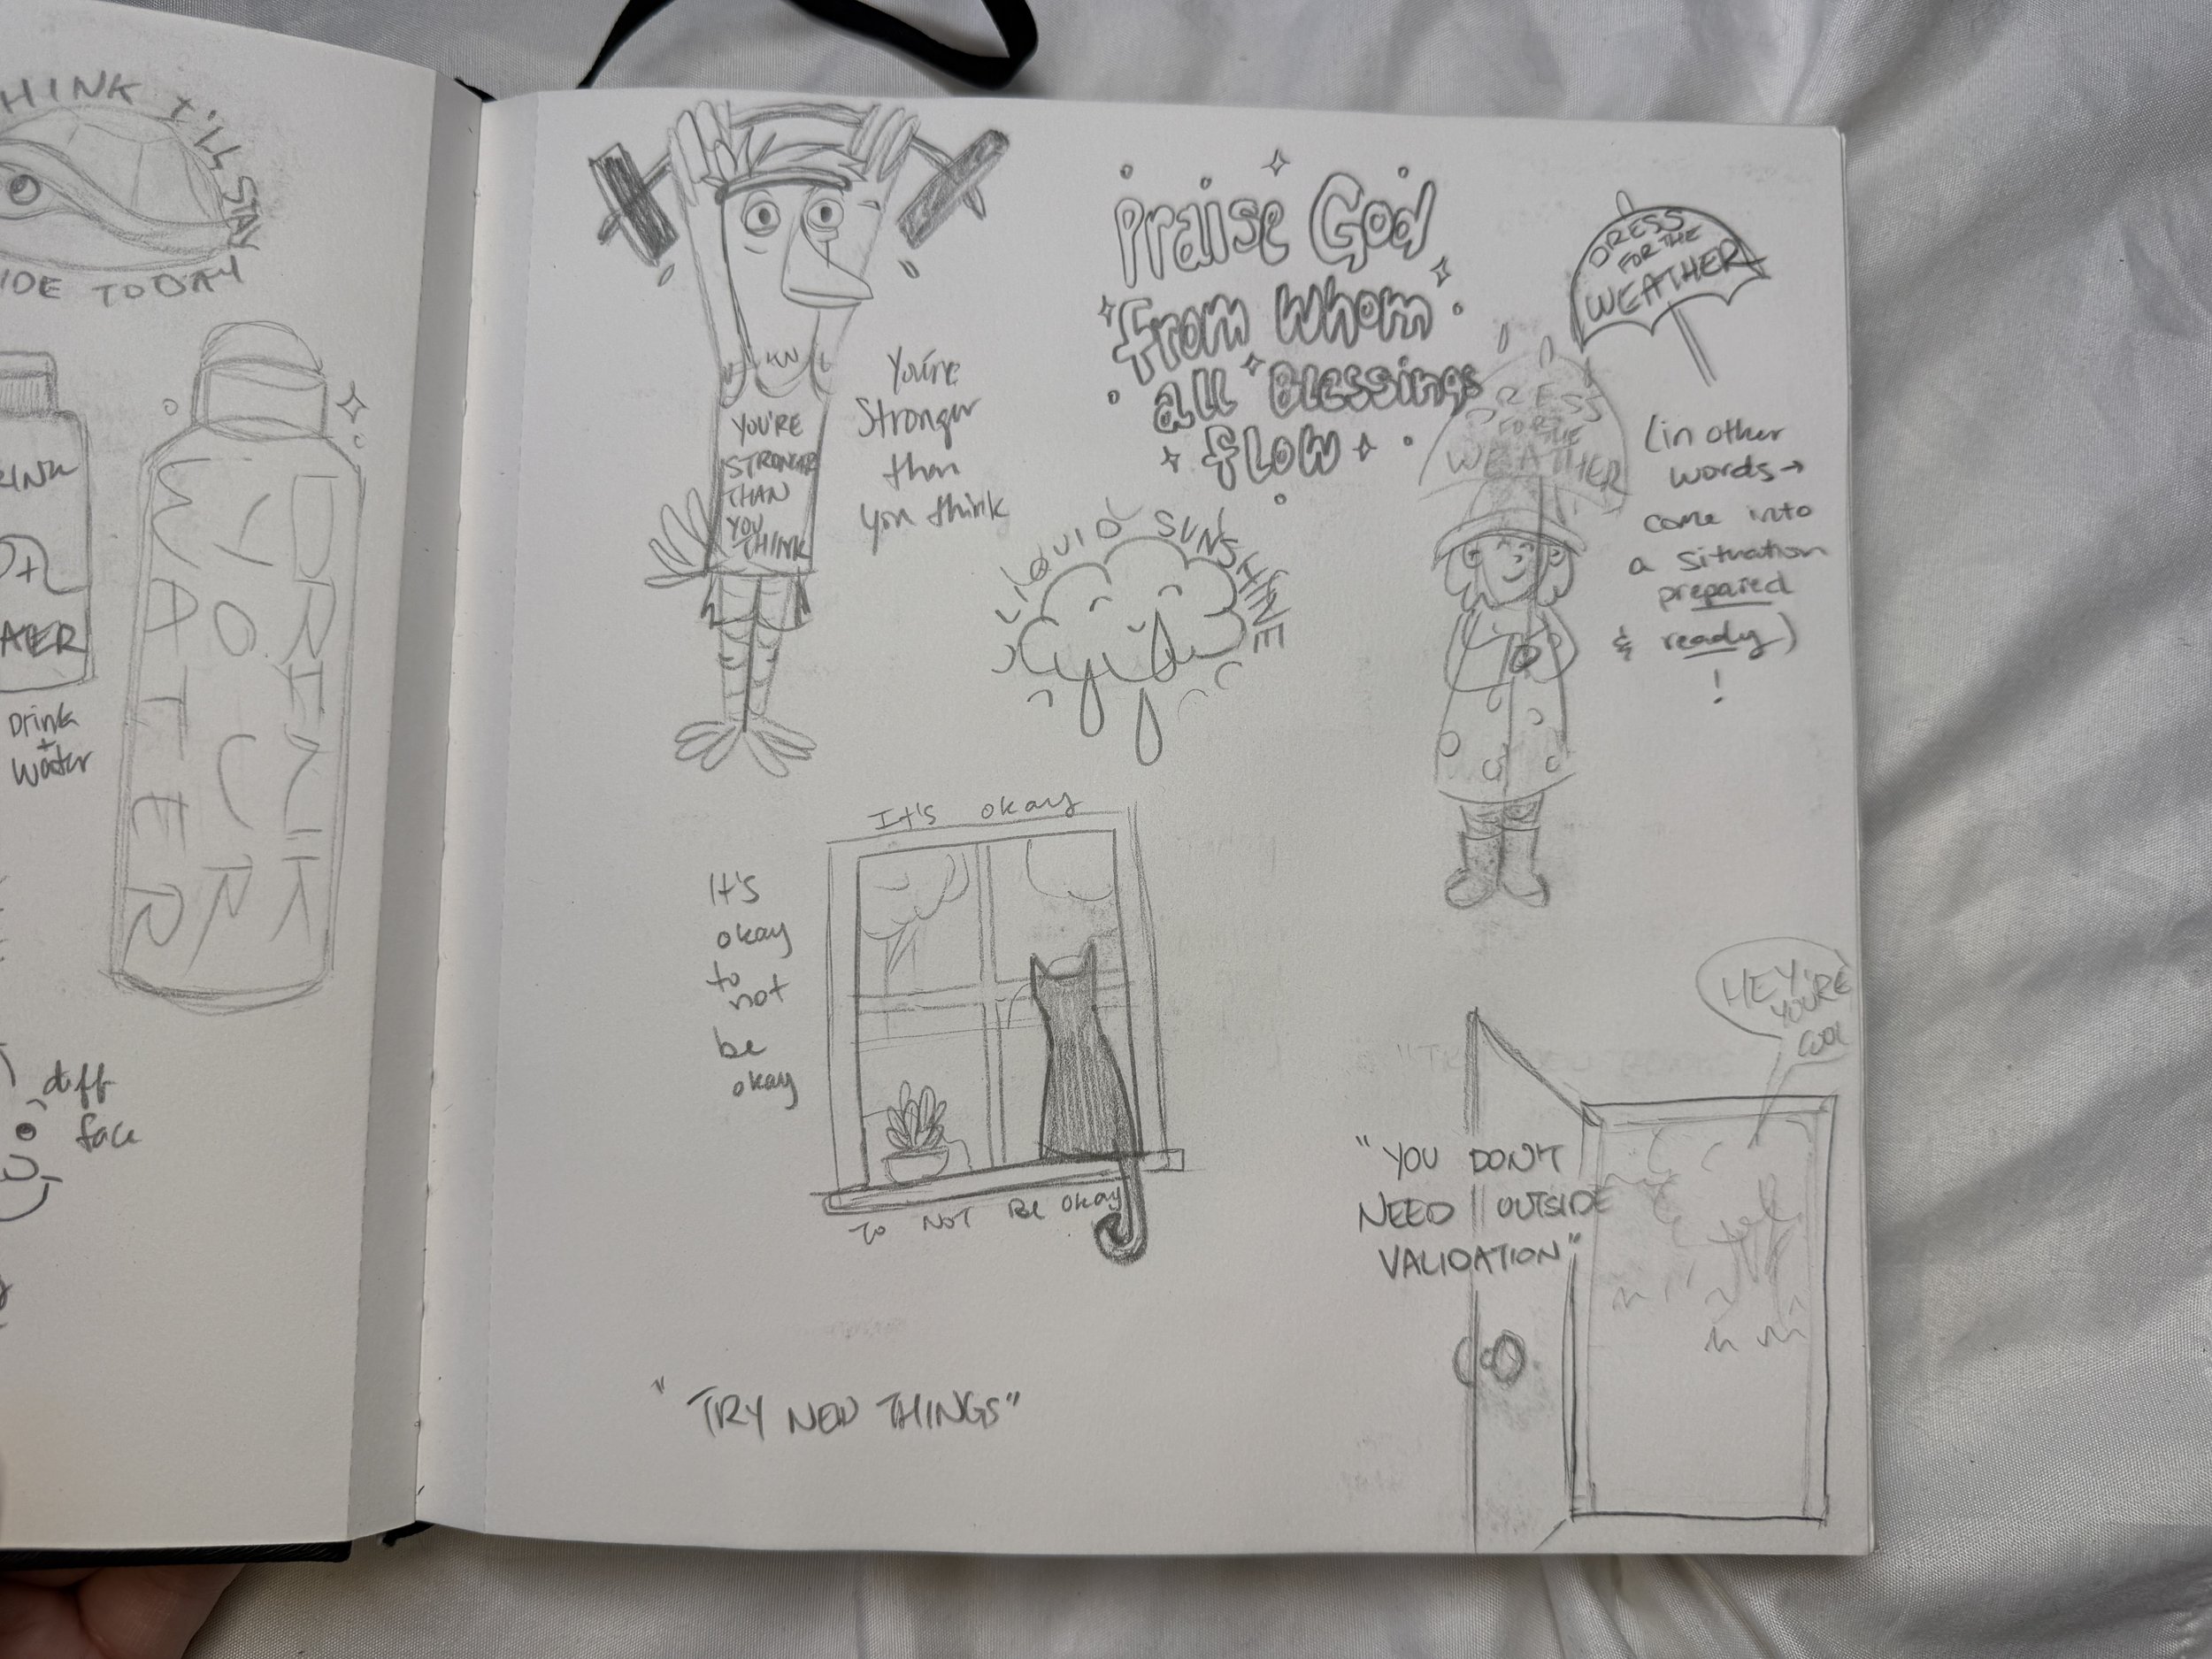 HINK I'LL STAY
IDE TODAY
WATER
YOUR
DRINK
ATER
Drink
+
Water
diff
face
YOU'RE
STRONGER
THAN
YOU
THINK
You're
Stronger
than
you think
Praise God
From Whom
all Blessings
flow
LIQUID SUNSHINE
DRESS
FOR THE
WEATHER
DRESS
FOR
THE
WEATHER
(in other
words →
come into
a situation
prepared
& ready)
!
It's okay
TO NOT BE Okay
It's
okay
to
not
be
okay
HEY,
YOU'RE
COOL
"YOU DON'T
NEED OUTSIDE
VALIDATION"
"TRY NEW THINGS"